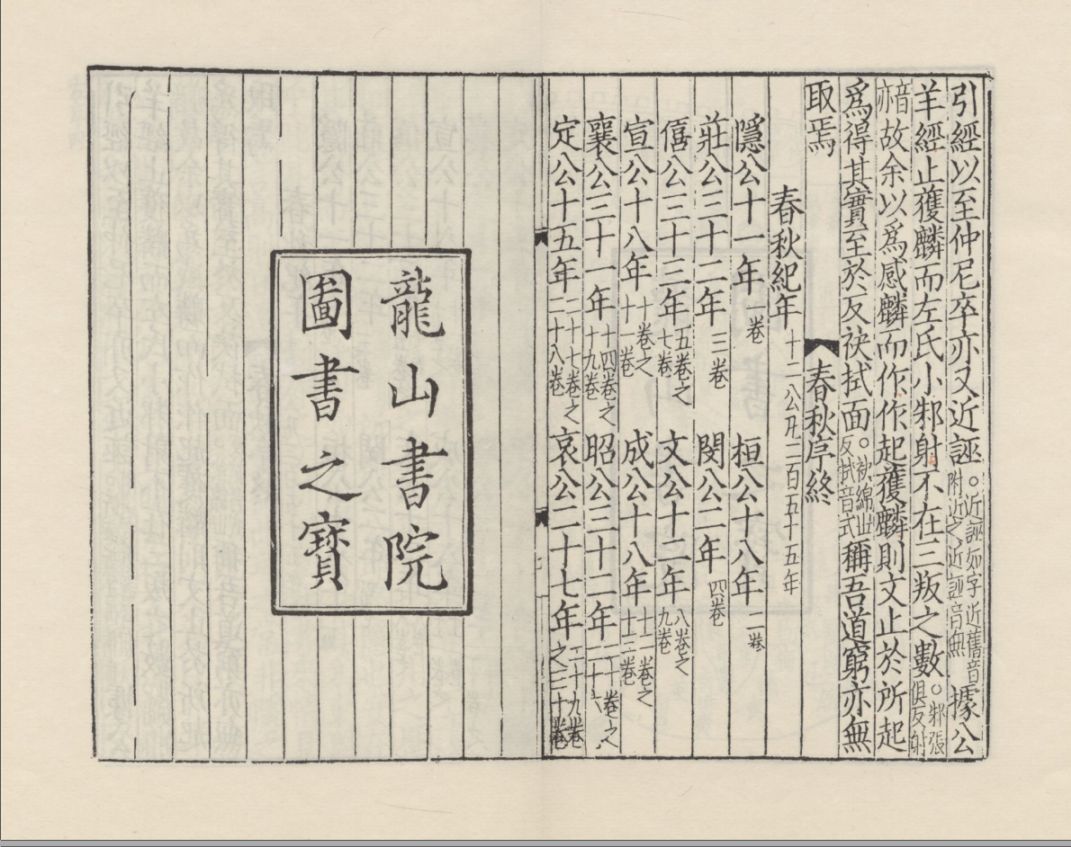 引經以至仲尼卒亦又近誣。近誣如字近舊音附近之近誣音無據公
羊經止獲麟而左氏小邾射不在三叛之數。邾張俱反射
音亦故余以為感麟而作作起獲麟則文止於所起
為得其實至於反袂拭面。袂綿世反拭音式稱吾道窮亦無
取焉
春秋序終
春秋紀年十二公凡二百五十五年
隱公十一年一卷 桓公十八年二卷
莊公三十二年三卷 閔公二年四卷
僖公三十三年五卷之七卷 文公十二年八卷之九卷
宣公十八年十卷之十一卷 成公十八年十二卷之十三卷
襄公三十一年十四卷之十九卷 昭公三十二年二十卷之二十六
定公十五年二十七卷之二十八卷 哀公二十七年二十九卷之三十卷
龍山書院
圖書之寶